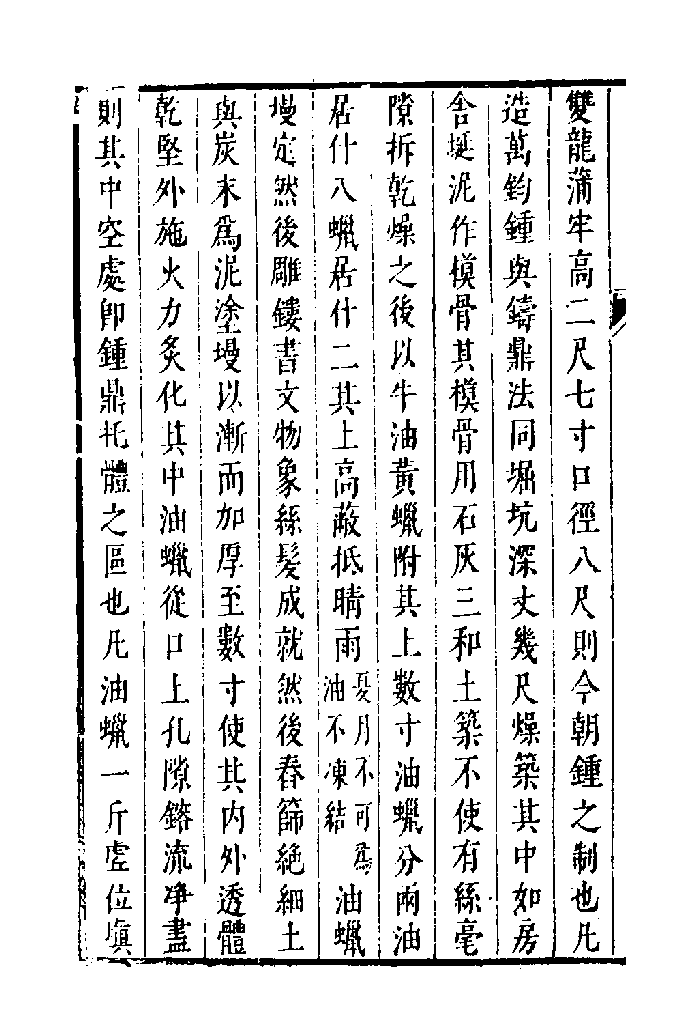 雙龍蒲牢高二尺七寸口徑八尺則今朝鍾之制也凡
造萬鈞鍾與鑄鼎法同堀坑深丈幾尺燥築其中如房
舍埏泥作模骨其模骨用石灰三和土築不使有絲毫
隙拆乾燥之後以牛油黃蠟附其上數寸油蠟分兩油
居什八蠟居什二其上高蔽抵晴雨夏月不可為油不凍結油蠟
墁定然後雕鏤書文物象絲髮成就然後舂篩絕細土
與炭末爲泥塗墁以漸而加厚至數寸使其內外透體
乾堅外施火力炙化其中油蠟從口上孔隙鎔流凈盡
則其中空處即鍾鼎托體之區也凡油蠟一斤虛位填